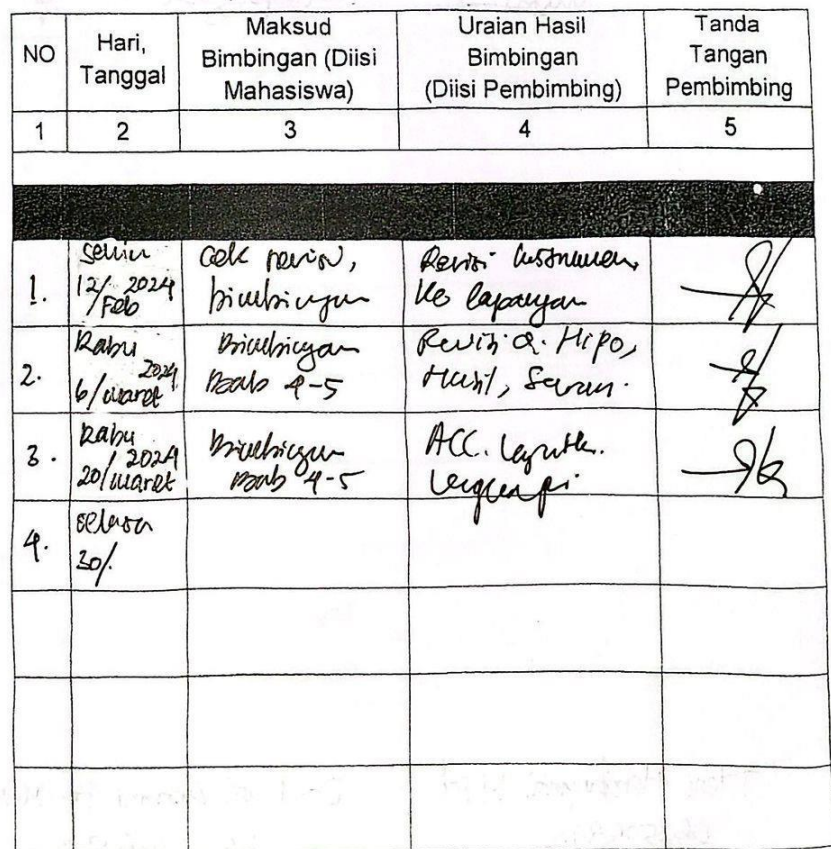 NO
Hari,
Tanggal
Maksud
Bimbingan (Diisi
Mahasiswa)
Uraian Hasil
Bimbingan
(Diisi Pembimbing)
Tanda
Tangan
Pembimbing
1
2
3
4
5
1.
Senin
12/Feb 2024
cek revisi,
bimbingan
Revisi instrumen,
ke lapangan
2.
Rabu
6/maret 2024
Bimbingan
Bab 4-5
Revisi Hipo,
Hasil, Saran.
3.
Rabu
20/maret 2024
Bimbingan
Bab 4-5
ACC.
Lengkapi
4.
selasa
30/.